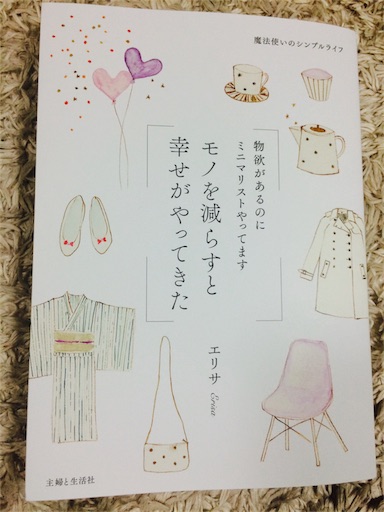 魔法使いのシンプルライフ
物欲があるのに
ミニマリストやってます
モノを減らすと
幸せがやってきた
エリサ
Erisa
主婦と生活社